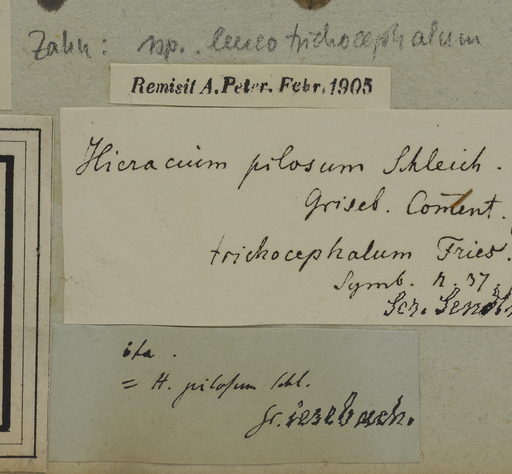 Zahn: sp. leucotrichocephalum
Remisit A. Peter. Febr. 1905
Hieracium pilosum Schleich.
Griseb. Coment.
trichocephalum Fries.
Symb. n. 37.
Scr.
ita.
= H. pilosum Schl.
Grisebach.